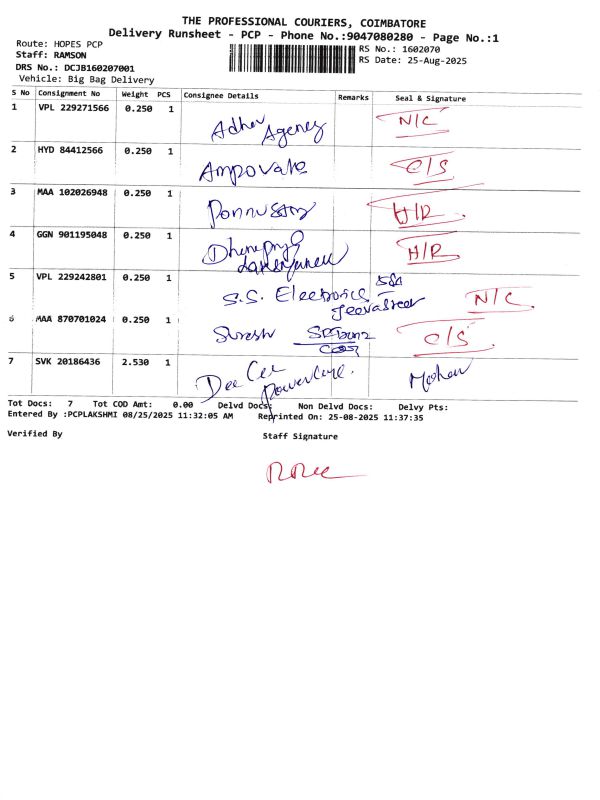 THE PROFESSIONAL COURIERS, COIMBATORE
Delivery Runsheet - PCP - Phone No.:9047080280 - Page No.:1
Route: HOPES PCP
RS No.: 1602070
Staff: RAMSON
RS Date: 25-Aug-2025
DRS No.: DCJB160207001
Vehicle: Big Bag Delivery
S No Consignment No Weight PCS Consignee Details Remarks Seal & Signature
1 VPL 229271566 0.250 1 Agency N/C
2 HYD 84412566 0.250 1 C/S
3 MAA 102026948 0.250 1 H/R
4 GGN 901195048 0.250 1 H/R
5 VPL 229242801 0.250 1 S.S. Electronics N/C
6 MAA 870701024 0.250 1 Suresh C/S
7 SVK 20186436 2.530 1 Dee Cee Mohan
Tot Docs: 7 Tot COD Amt: 0.00 Delvd Docs: Non Delvd Docs: Delvy Pts:
Entered By :PCPLAKSHMI 08/25/2025 11:32:05 AM Reprinted On: 25-08-2025 11:37:35
Verified By Staff Signature